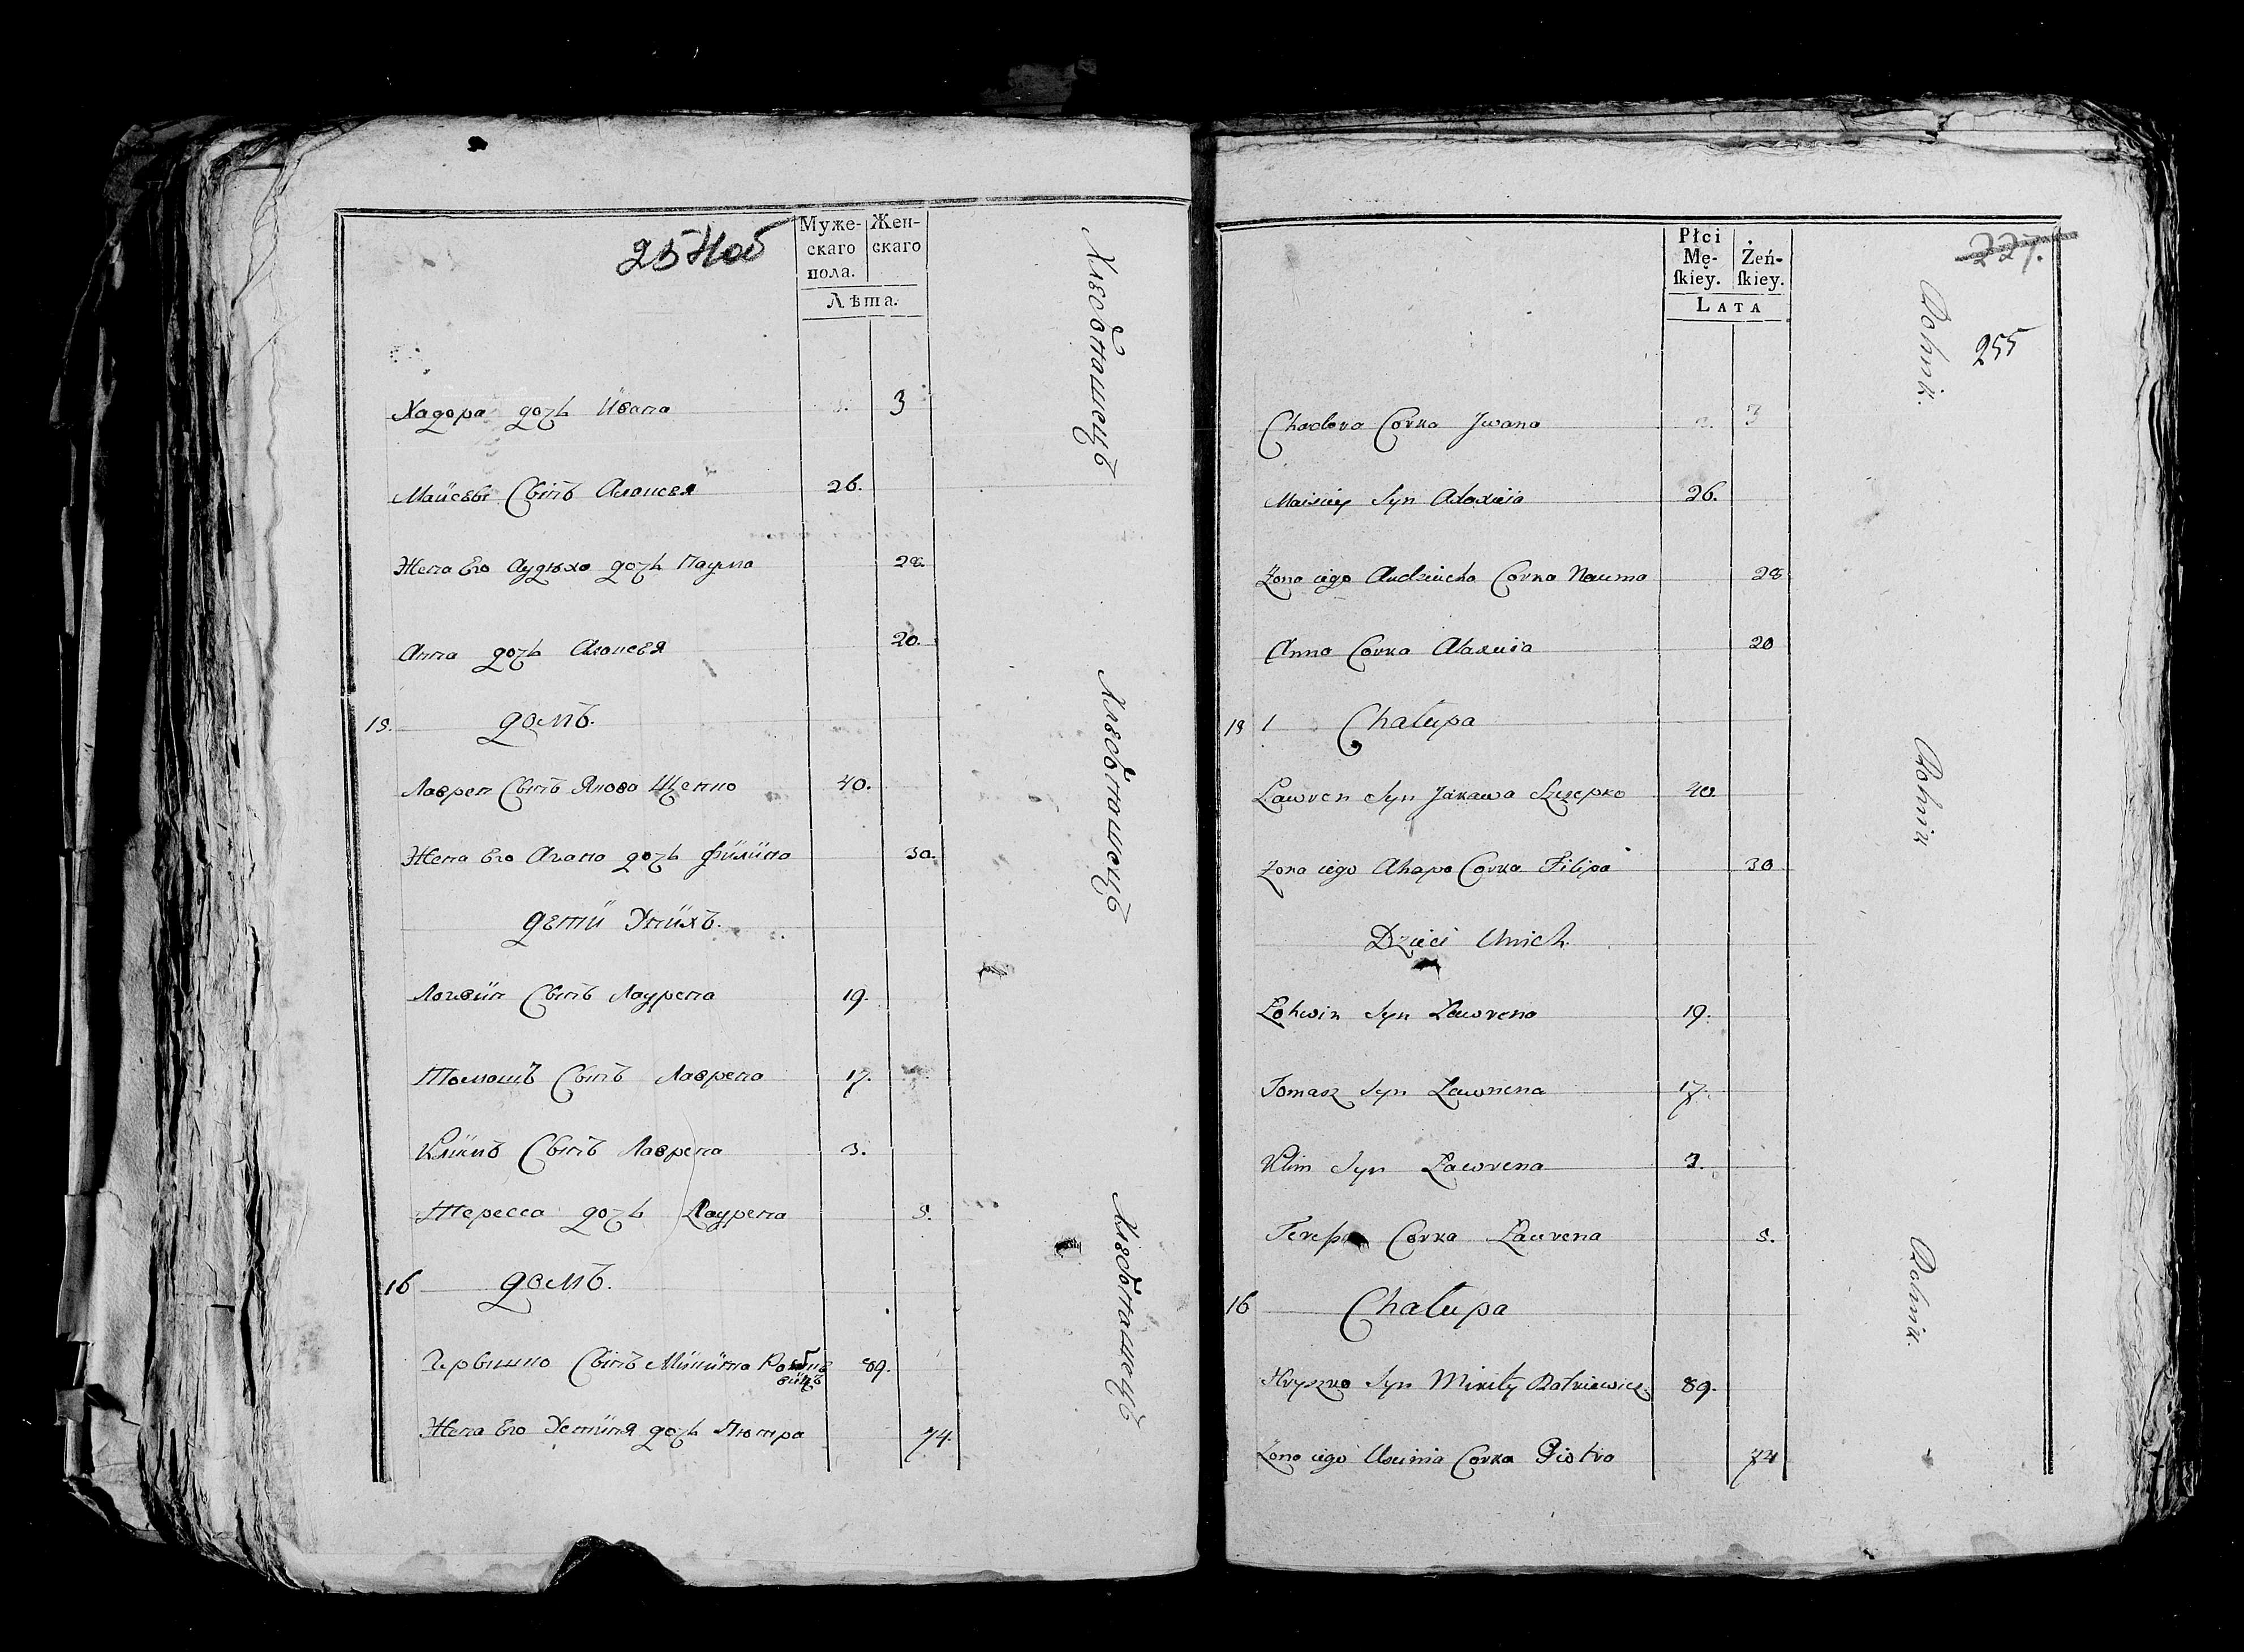 254об
Муже-
скаго
пола.
Жен-
скаго
Лѣта.
Хадора дочь Ивана 3
Майсѣй Сынъ Алексея 26.
Жена Его Аудзюха дочь Наума 28.
Анна дочь Алексея 20.
15. домъ.
Лаврен Сынъ Якова Щепко 40.
Жена Его Агапа дочь Филипа 30.
дети Унихъ.
Логвин Сынъ Лаурена 19.
Томашъ Сынъ Лаврена 17.
Климъ Сынъ Лаврена 3.
Тересса дочь Лаурена 5.
16 домъ.
Грышко Сынъ Микиты 89.
вичъ
Жена Его Устиня дочь Пютра 74.
Хлебопашецъ
Хлебопашецъ
Хлебопашецъ
Płci
Mę-
skiey.
Żeń-
skiey.
LATA
227.
255
Chodora Corka Jwana 3
Maisiey Syn Alaxieia 26.
Zona iego Audziucha Corka Nauma 28
Anna Corka Alaxieia 20
15 1 Chałupa
Lawren Syn Jakawa Szczepko 40.
Zona iego Ahapa Corka Filipa 30
Dzieci Unich.
Lohwin Syn Lawrena 19.
Tomasz Syn Lawrena 17.
Klim Syn Lawrena 3.
Corka Lawrena 5.
16 Chałupa
Hryszko Syn Mikity 89.
Zona iego Uscinia Corka Piotra 74
Rolnik.
Rolnik
Rolnik.